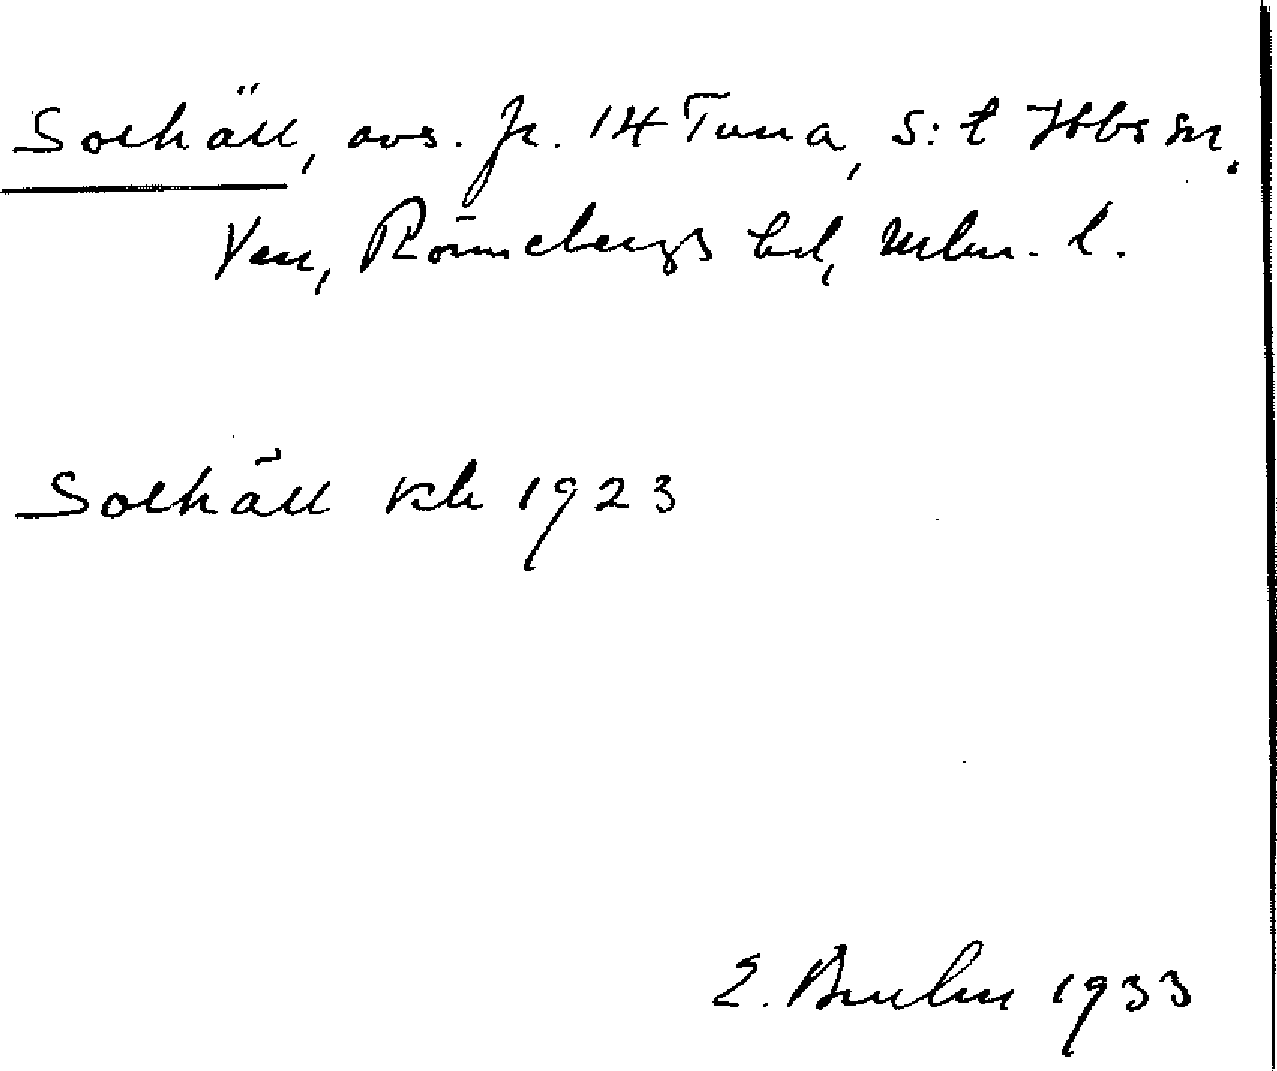 Solhäll, avs. fr. 14 Tuna, S:t Ibbs sn.
Ven, Rönnebergs hd, Mlm. l.
Solhäll kk 1923
E. Bruhn 1933